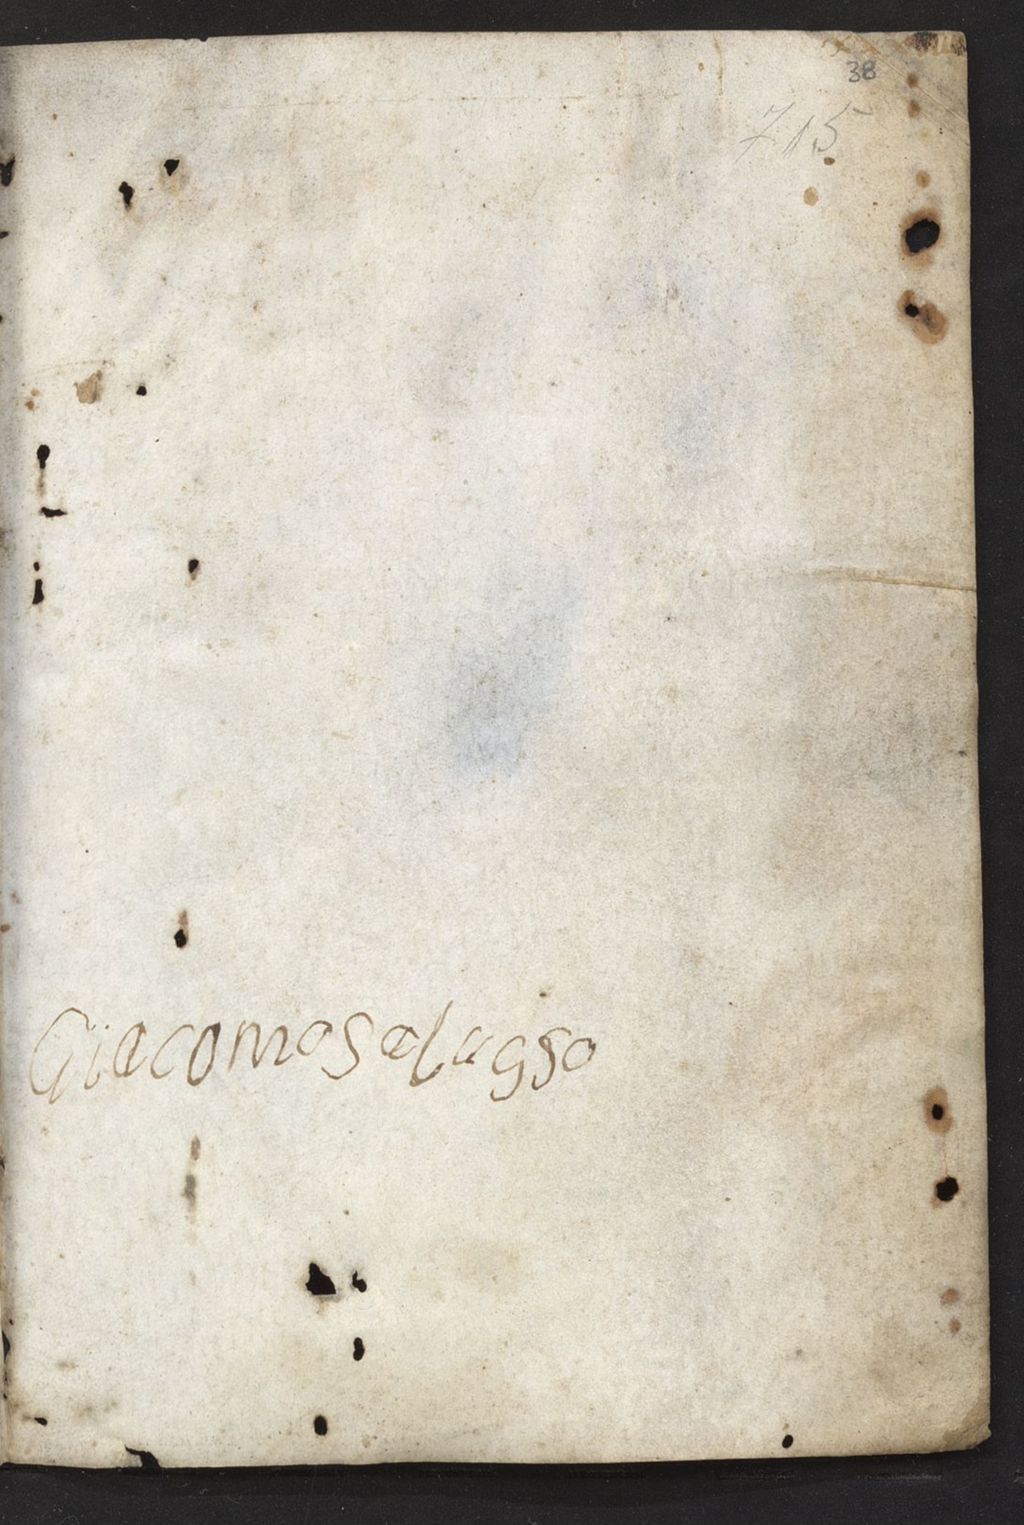 38
715
Giacomo Salusso